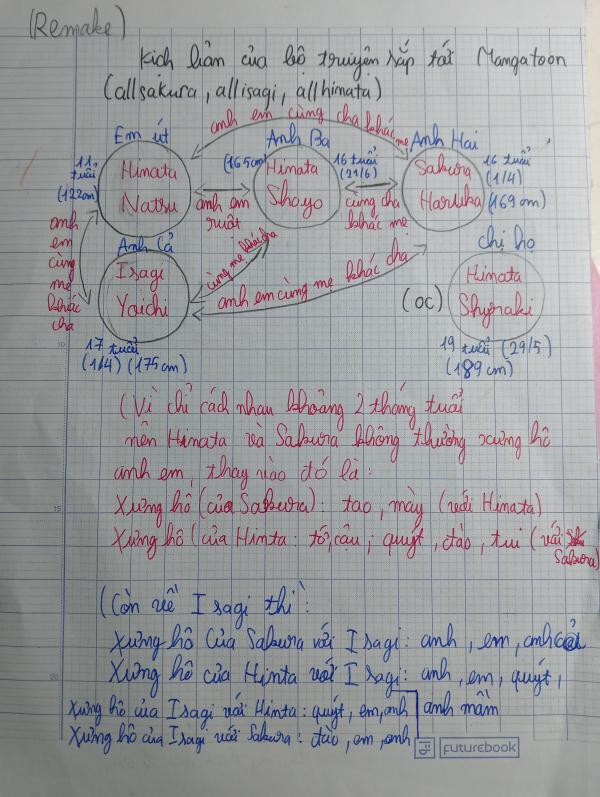 (Remake)
Kịch bản của bộ truyện sắp tới Mangatoon
(allsakura, allisagi, allhinata)
anh em cùng cha khác mẹ
Em út
Anh Ba
Anh Hai
11 tuổi
(122cm)
Hinata
Natsu
anh em
ruột
(165cm)
Hinata
Shoyo
16 tuổi
(21/6)
cùng cha
khác mẹ
Sakura
Haruka
16 tuổi
(1/4)
(169 cm)
anh
em
cùng
mẹ
khác
cha
Anh Cả
Isagi
Yoichi
cùng mẹ khác cha
anh em cùng mẹ khác cha
17 tuổi
(1/4) (175cm)
chị họ
(oc)
Hinata
19 tuổi (29/5)
(189 cm)
(Vì chỉ cách nhau khoảng 2 tháng tuổi
nên Hinata và Sakura không thường xưng hô
anh em, thay vào đó là:
Xưng hô (của Sakura): tao, mày (với Hinata)
Xưng hô (của Hinta: tớ, cậu, quýt, đào, tui (với
Sakura)
(Còn về Isagi thì:
Xưng hô Của Sakura với Isagi: anh, em, anh cả
Xưng hô của Hinta với Isagi: anh, em, quýt,
anh mầm
Xưng hô của Isagi với Hinta: quýt, em, anh
Xưng hô của Isagi với Sakura: đào, em, anh
FUTUREBOOK